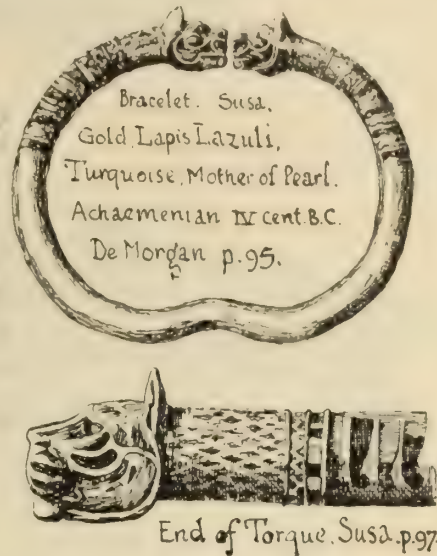 Bracelet. Susa.
Gold, Lapis Lazuli,
Turquoise, Mother of Pearl.
Achaemenian IV cent. B.C.
De Morgan p.95.
End of Torque, Susa. p.97